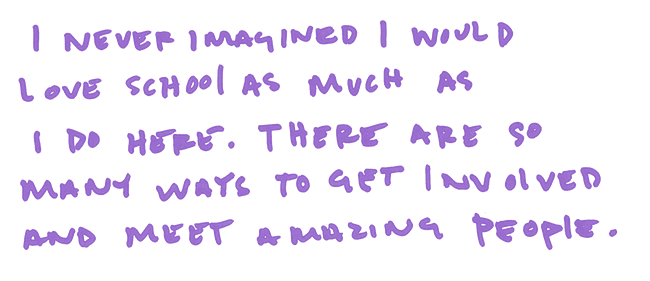 I NEVER IMAGINED I WOULD
LOVE SCHOOL AS MUCH AS
I DO HERE. THERE ARE SO
MANY WAYS TO GET INVOLVED
AND MEET AMAZING PEOPLE.